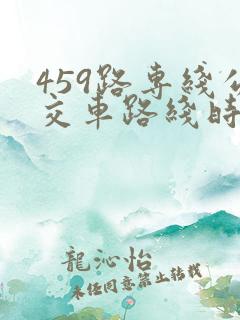 459路专綫公
交車路綫時
龍沁怡
未经同意禁止转载